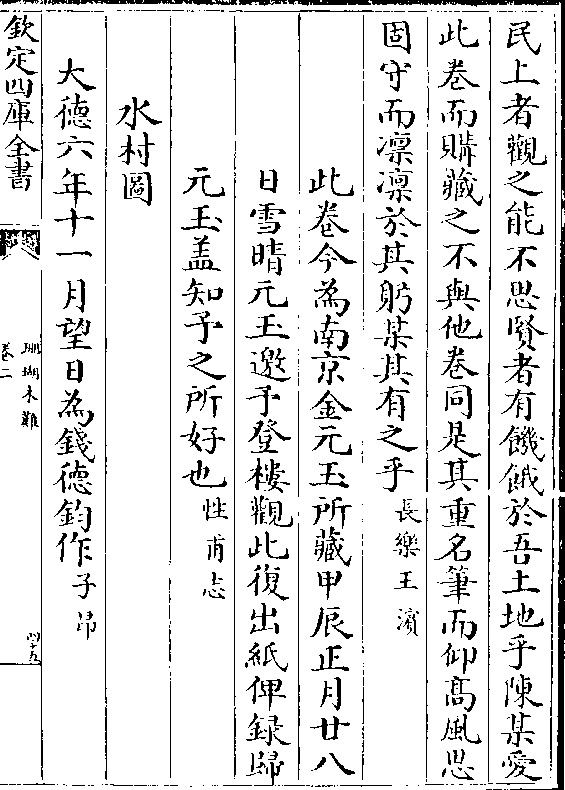 民上者觀之能不思賢者有饑餓於吾土地乎陳某愛
此卷而購藏之不與他卷同是其重名筆而仰髙風思
固守而凛凛於其躬某其有之乎長樂王濱
此卷今為南京金元玉所藏甲辰正月廿八
日雪晴元玉邀予登樓觀此復出紙俾録歸
元玉盖知予之所好也性甫志
水村圖
大德六年十一月望日為錢德鈞作子昻
欽定四庫全書
珊瑚木難
卷二
四十五